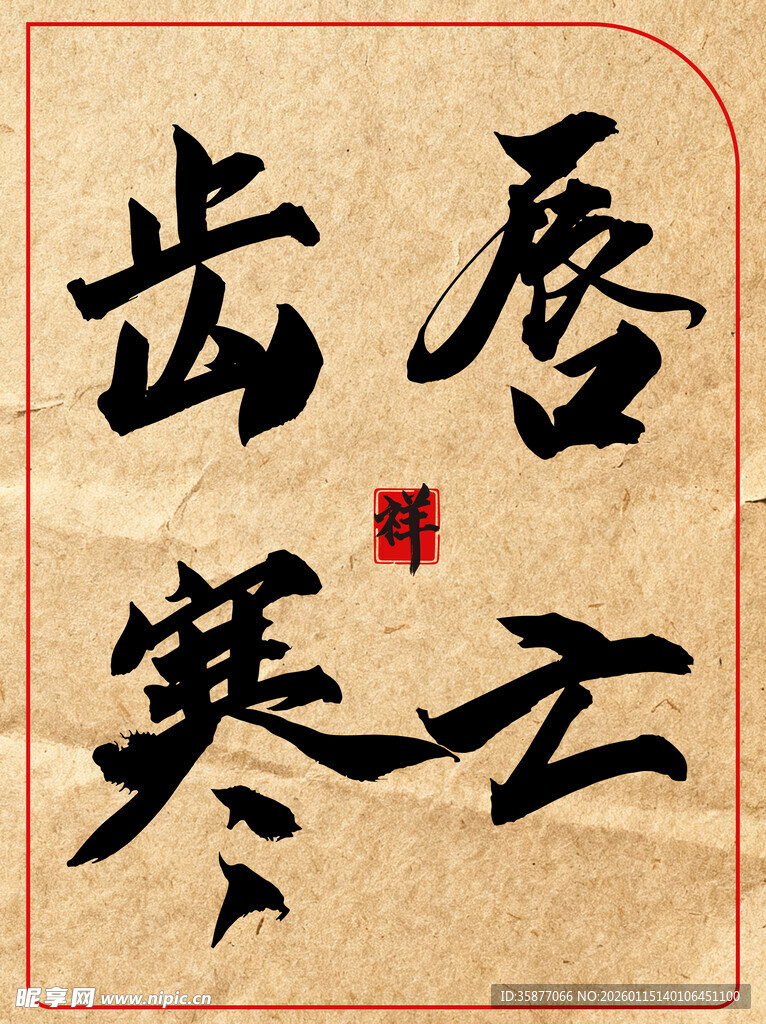 唇亡
齿寒
祥
昵享网 www.nipic.cn
ID:35877066 NO:20260115140106451100